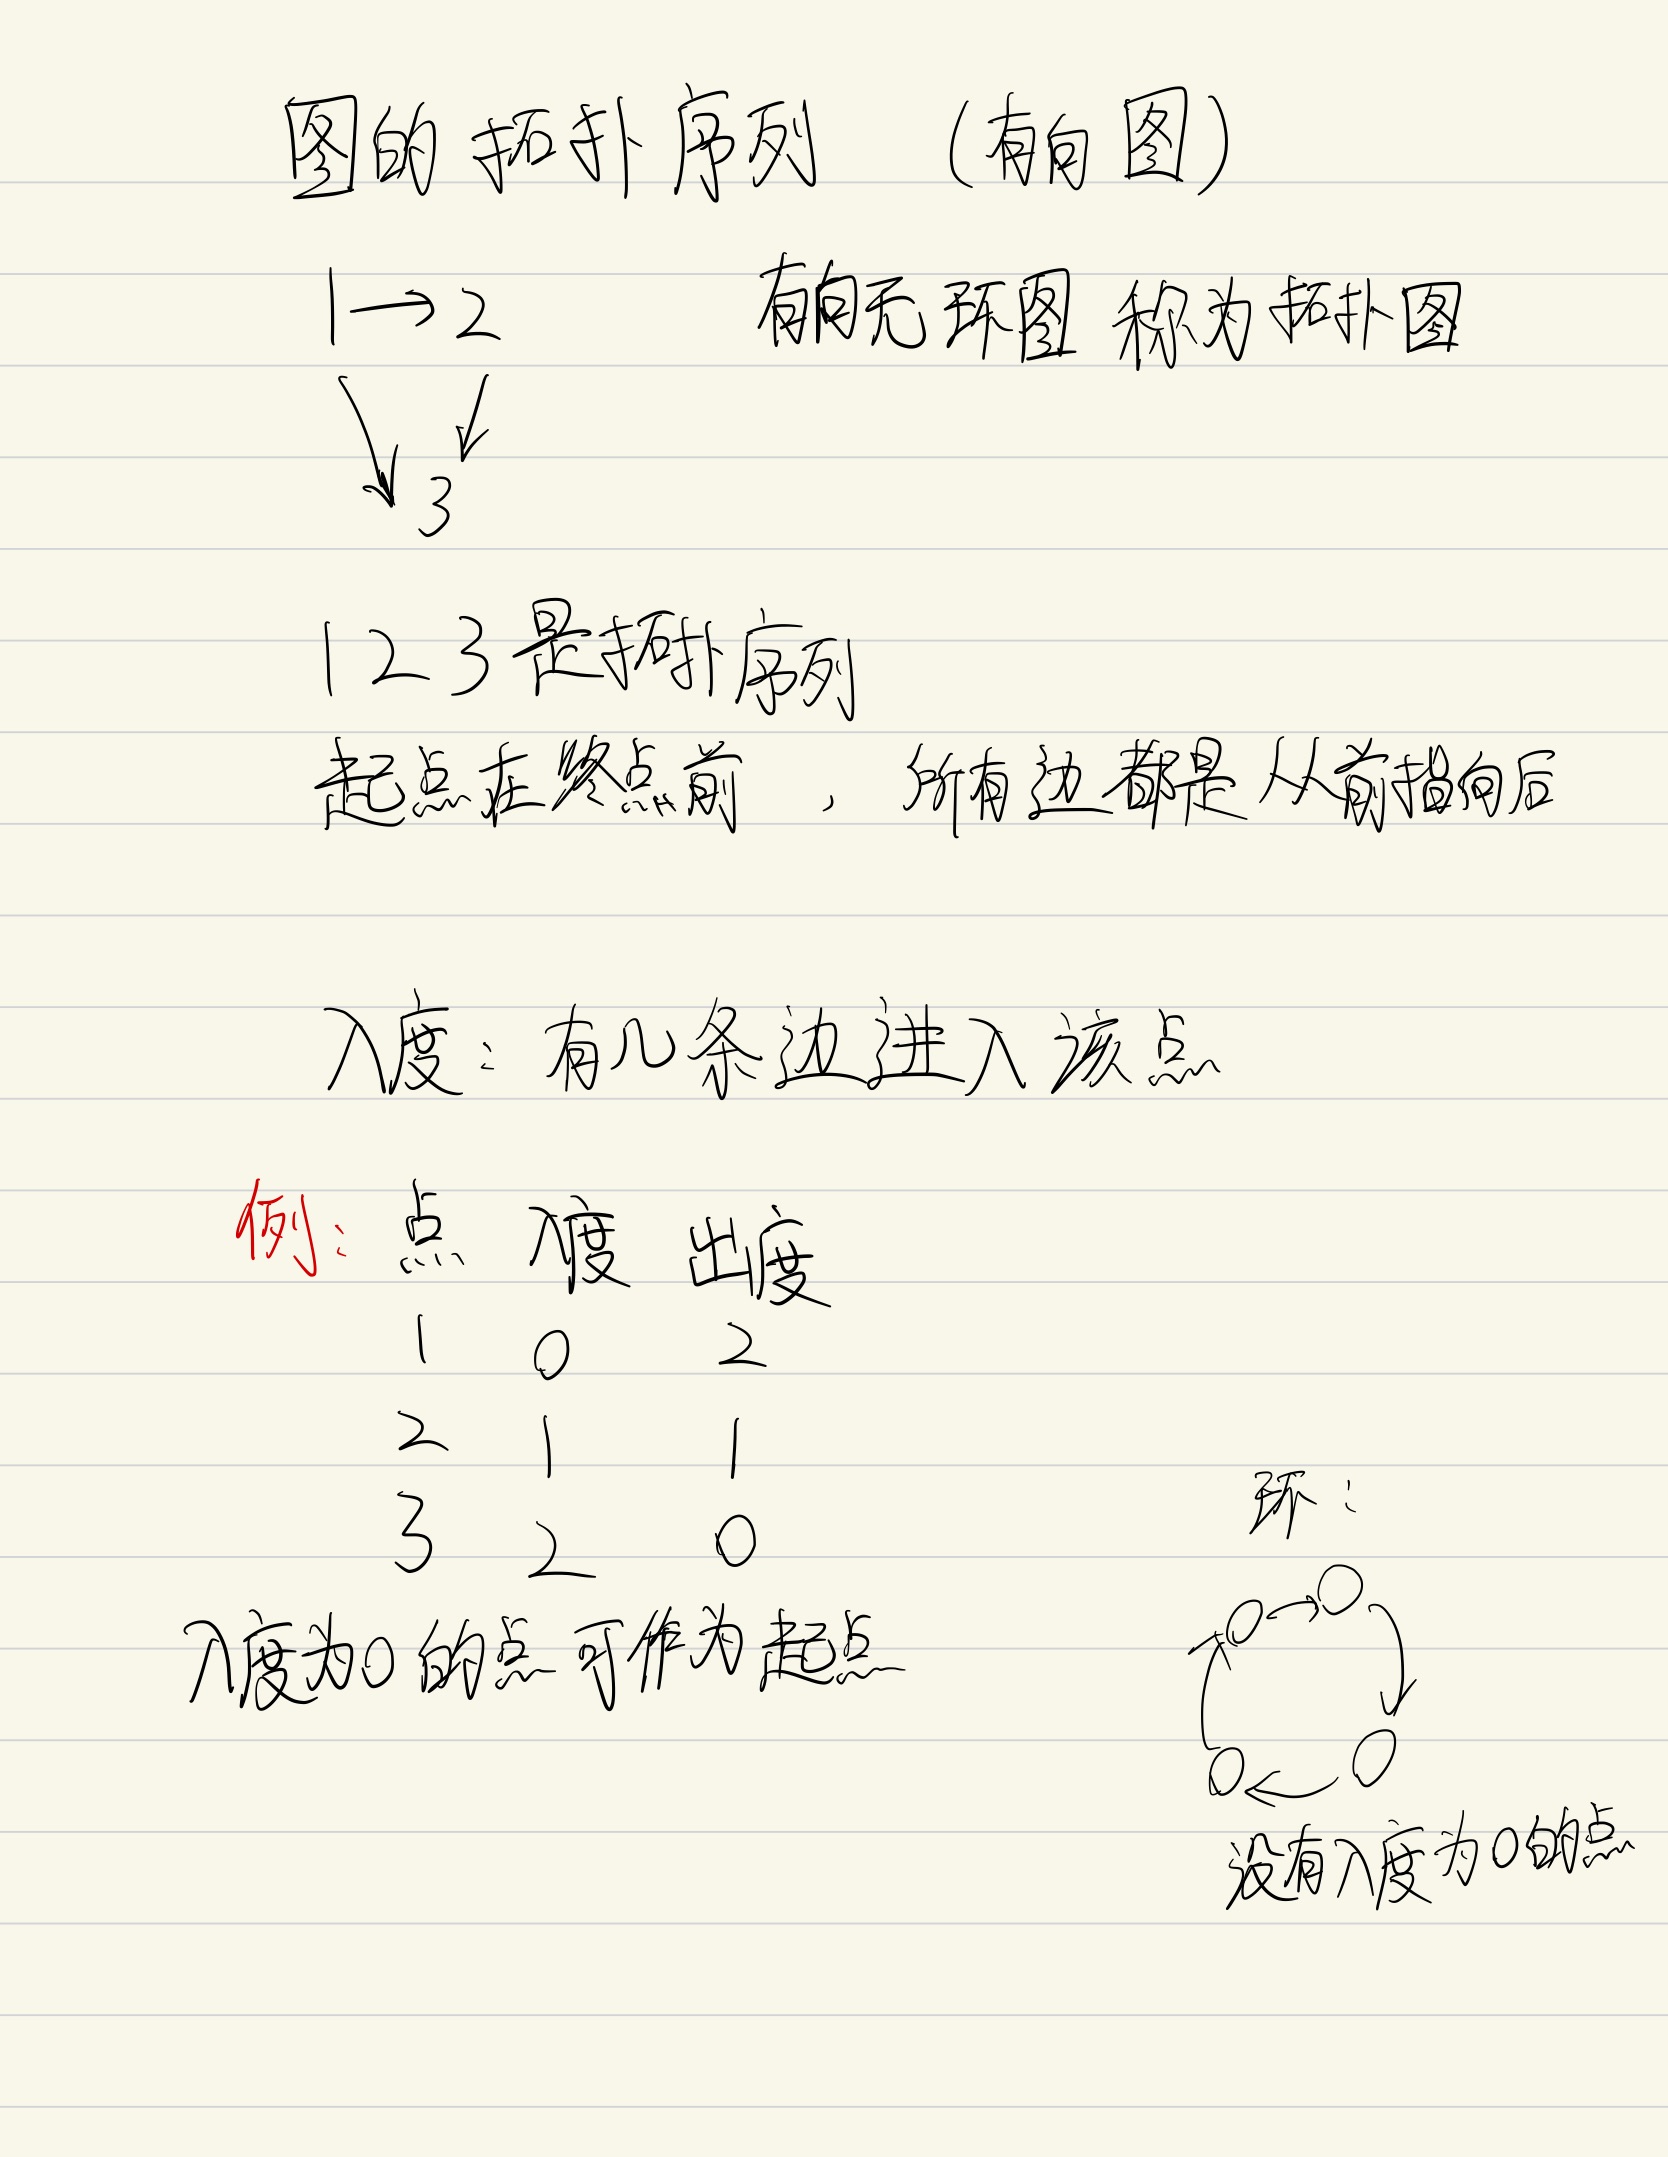 图的拓扑序列 (有向图)
1→2 有向无环图称为拓扑图
3
1 2 3是拓扑序列
起点在终点前，所有边都是从前指向后
入度：有几条边进入该点
例：点 入度 出度
1 0 2
2 1 1
3 2 0
环：
入度为0的点可作为起点
没有入度为0的点